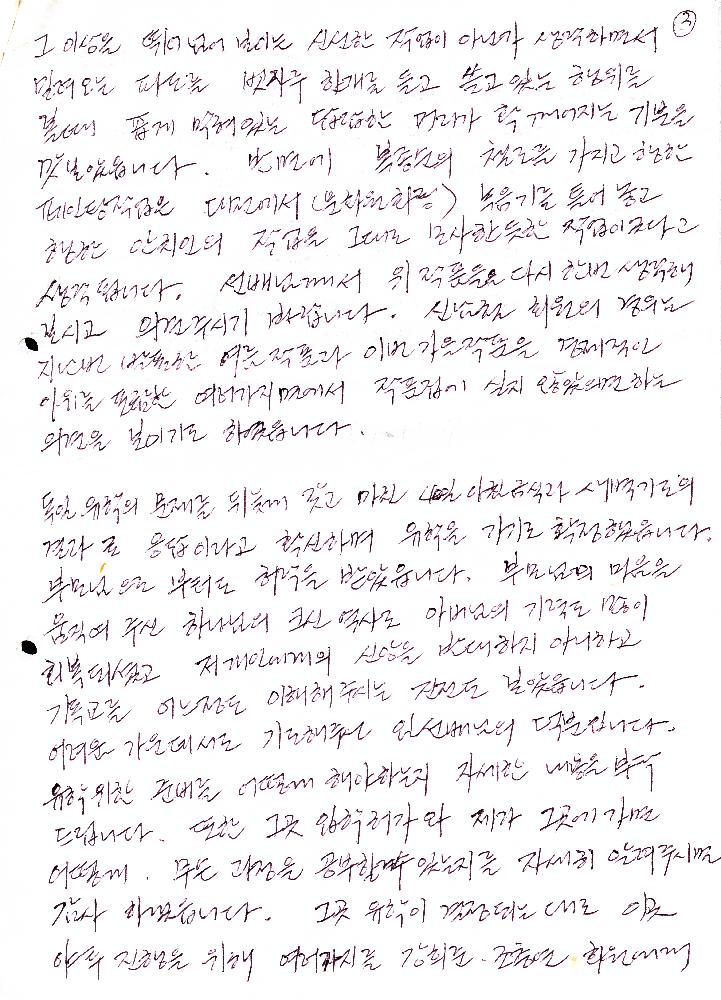 ③
그 이상을 뛰어넘어 보이는 신선한 작업이 아닌가 생각하면서
밀려오는 파도를 빗자루 한개를 들고 쓸고 있는 행위를
볼때 품게 막혀있는 답답한 머리가 확 깨어지는 기분을
맛보았읍니다. 반면에 복종순의 철로를 가지고 행한
페인팅작업은 대전에서 (문화원화랑) 녹음기를 틀어놓고
행한 안치인의 작업을 그대로 묘사한듯한 작업이었다고
생각됩니다. 선배님께서 위 작품들을 다시 한번 생각해
보시고 의견주시기 바랍니다. 회원의 경우는
지난번 발표한 여름작품과 이번 가을작품을 경제적인
이유는 여러가지면에서 작품집에 싣지 않았으면 하는
의견을 보이기도 하였읍니다.
독일 유학의 문제를 뒤늦게 갖고 마친 40일 아침금식과 새벽기도의
결과로 응답이라고 확신하며 유학을 가기로 확정했읍니다.
부모님으로부터도 허락을 받았읍니다. 부모님의 마음을
움직여 주신 하나님의 크신 역사로 아버님의 기력도 많이
회복되셨고 저 개인에게의 신앙을 반대하지 아니하고
기독교를 어느정도 이해해주시는 진전도 보았읍니다.
어려운 가운데서도 기도해주신 선배님의 덕분입니다.
유학위한 준비를 어떻게 해야하는지 자세한 내용을 부탁
드립니다. 또한 그곳 입학허가와 제가 그곳에 가면
어떻게, 무슨 과정을 공부할수 있는지를 자세히 알려주시면
감사 하겠읍니다. 그곳 유학이 결정되는 대로 이곳
야투 진행을 위해 여러가지를 강희준. 조충연 회원에게